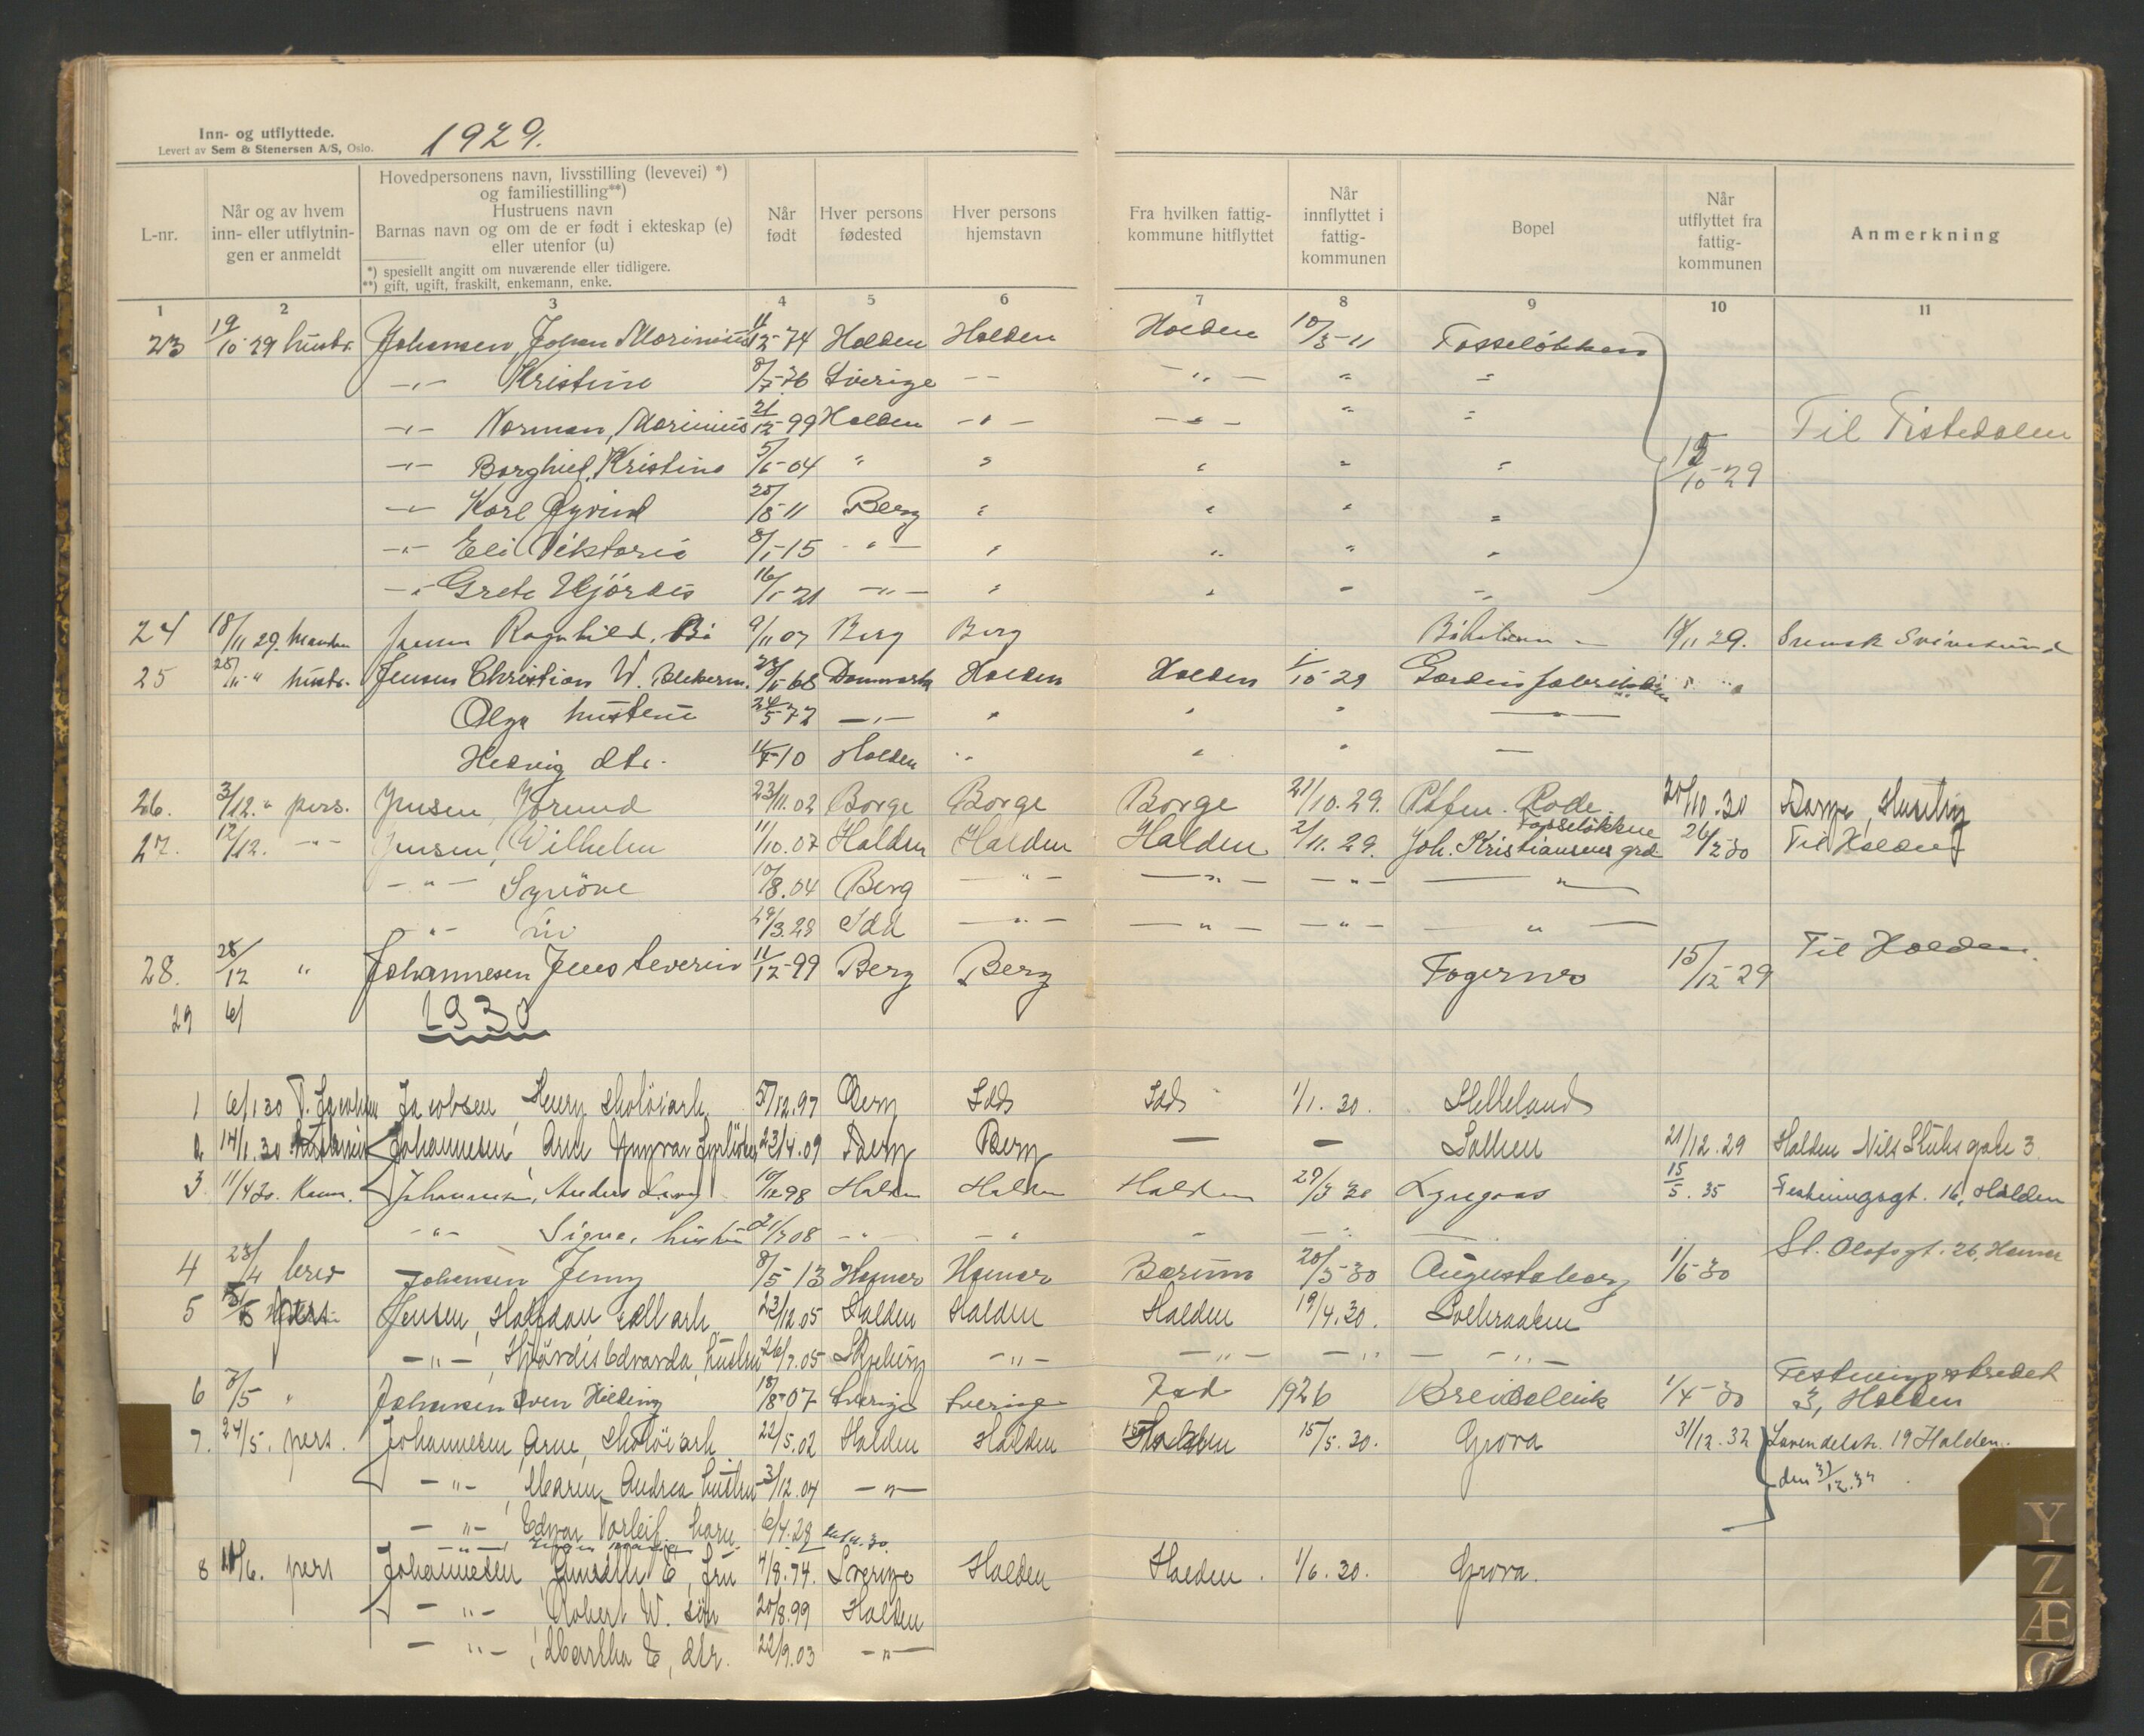 Inn- og utflyttede.
Levert av Sem & Stenersen A/S, Oslo.
1929.
L-nr.
Når og av hvem inn- eller utflytnin- gen er anmeldt
Hovedpersonens navn, livsstilling (levevei) *) og familiestilling**)
Hustruens navn
Barnas navn og om de er født i ekteskap (e) eller utenfor (u)
*) spesiellt angitt om nuværende eller tidligere.
**) gift, ugift, fraskilt, enkemann, enke.
Når født
Hver persons fødested
Hver persons hjemstavn
Fra hvilken fattig- kommune hitflyttet
Når innflyttet i fattig- kommunen
Bopel
Når utflyttet fra fattig- kommunen
Anmerkning
1 2 3 4 5 6 7 8 9 10 11
23 19/10 29 hustr. Johansen, Johan Marinius 11/12-74 Halden Halden Halden 10/3-11 Fosseløkken
-"- Kristine Sverige -"- " "
-"- Norman, Marinius 21/12-99 Halden -"- -"- " " Til Tistedalen
-"- Borghild, Kristine 5/6-04 " " " " " 15/10-29
-"- Karl Øyvind 25/8-11 Berg " " " "
-"- Eli Viktoria 8/1-15 -"- " " " "
-"- Grete Hjördis 16/1-21 -"- " " " "
24 18/11 29. Jensen Ragnhild, 9/11 07 Berg Berg 18/11 29. Svensk Svinesund
25 28/11 " hustr. Jensen Christian W. 68 Danmark Halden Halden 1/10-29
Olga hustru 24/5-72 -"- " " " -"-
Hedvig dtr. 10 Halden " " " -"-
26. 3/12. " pers. Jensen, Jörund 23/11.02 Borge Borge Borge 21/10.29. Rode. 20/10.30
27. 12/12. -"- Jensen, Wilhelm 11/10.07 Halden Halden Halden 2/11.29. Fosseløkken Joh. Kristiansens grd. 26/2-30 Til Halden
-"- Synöve 10/8.04 Berg -"- -"- -"- -"-
-"- Liv 29/3.29 Idd -"- -"- -"- -"-
28. 28/12 " Johannesen Jens Severin 11/12-99 Berg Berg Fagernes 15/12-29 Til Halden.
29 6/
1930
1 6/1 30 Jacobsen, Henry skotöiarb. 5/12.97 Berg Idd Idd 1/1.30. Helleland
2 14/1.30 Johannesen, Arne Yngvar 23/4.09 Berg Berg — — Solhein 21/12.29 Halden Nils Stubs gate 3.
3 11/4 30. Johannesen, Anders 10/12 98 Halden Halden Halden 29/3 30 Lyngaas 15/5.35 Festningsgt. 16, Halden
-"- Signe, hustru 08 -"- -"- " -"-
4 28/4 brev Johansen Jenny 8/5 13 Hamar Hamar Bærum 20/3-30 Augustaborg 1/6-30 St. Olafsgt. 26, Hamar
5 pers Jensen, Halfdan 23/12.05 Halden Halden Halden 19/4.30. Solbraaten
-"-, Hjördis Edvarda, hustru 26/7.05 Skjeberg -"- -"- -"- -"-
6 8/5 " Johansen Sven Hilding 18/8-07 Sverige Sverige Idd 1926 1/4-30 Festningsstredet 3, Halden
7. 24/5. pers. Johannesen, Arne, skotöiarb 22/5.02 Halden Halden Halden 15/5.30. Grova 31/12.32 Lavendelstr. 19 Halden.
-"-, Andrea hustru 3/12.04 -"- den 31/12.32.
-"-, Edvar Torleif, barn. 6/4.28
8 11/6. pers Johannesen, E, fru 4/8.74. Sverige Halden Halden. 1/6.30. Grova.
-"-, Robert W. sön 20/8.99 Halden
-"-, Martha E, dtr. 22/9.03 -"-
Y
Z
Æ
Ø